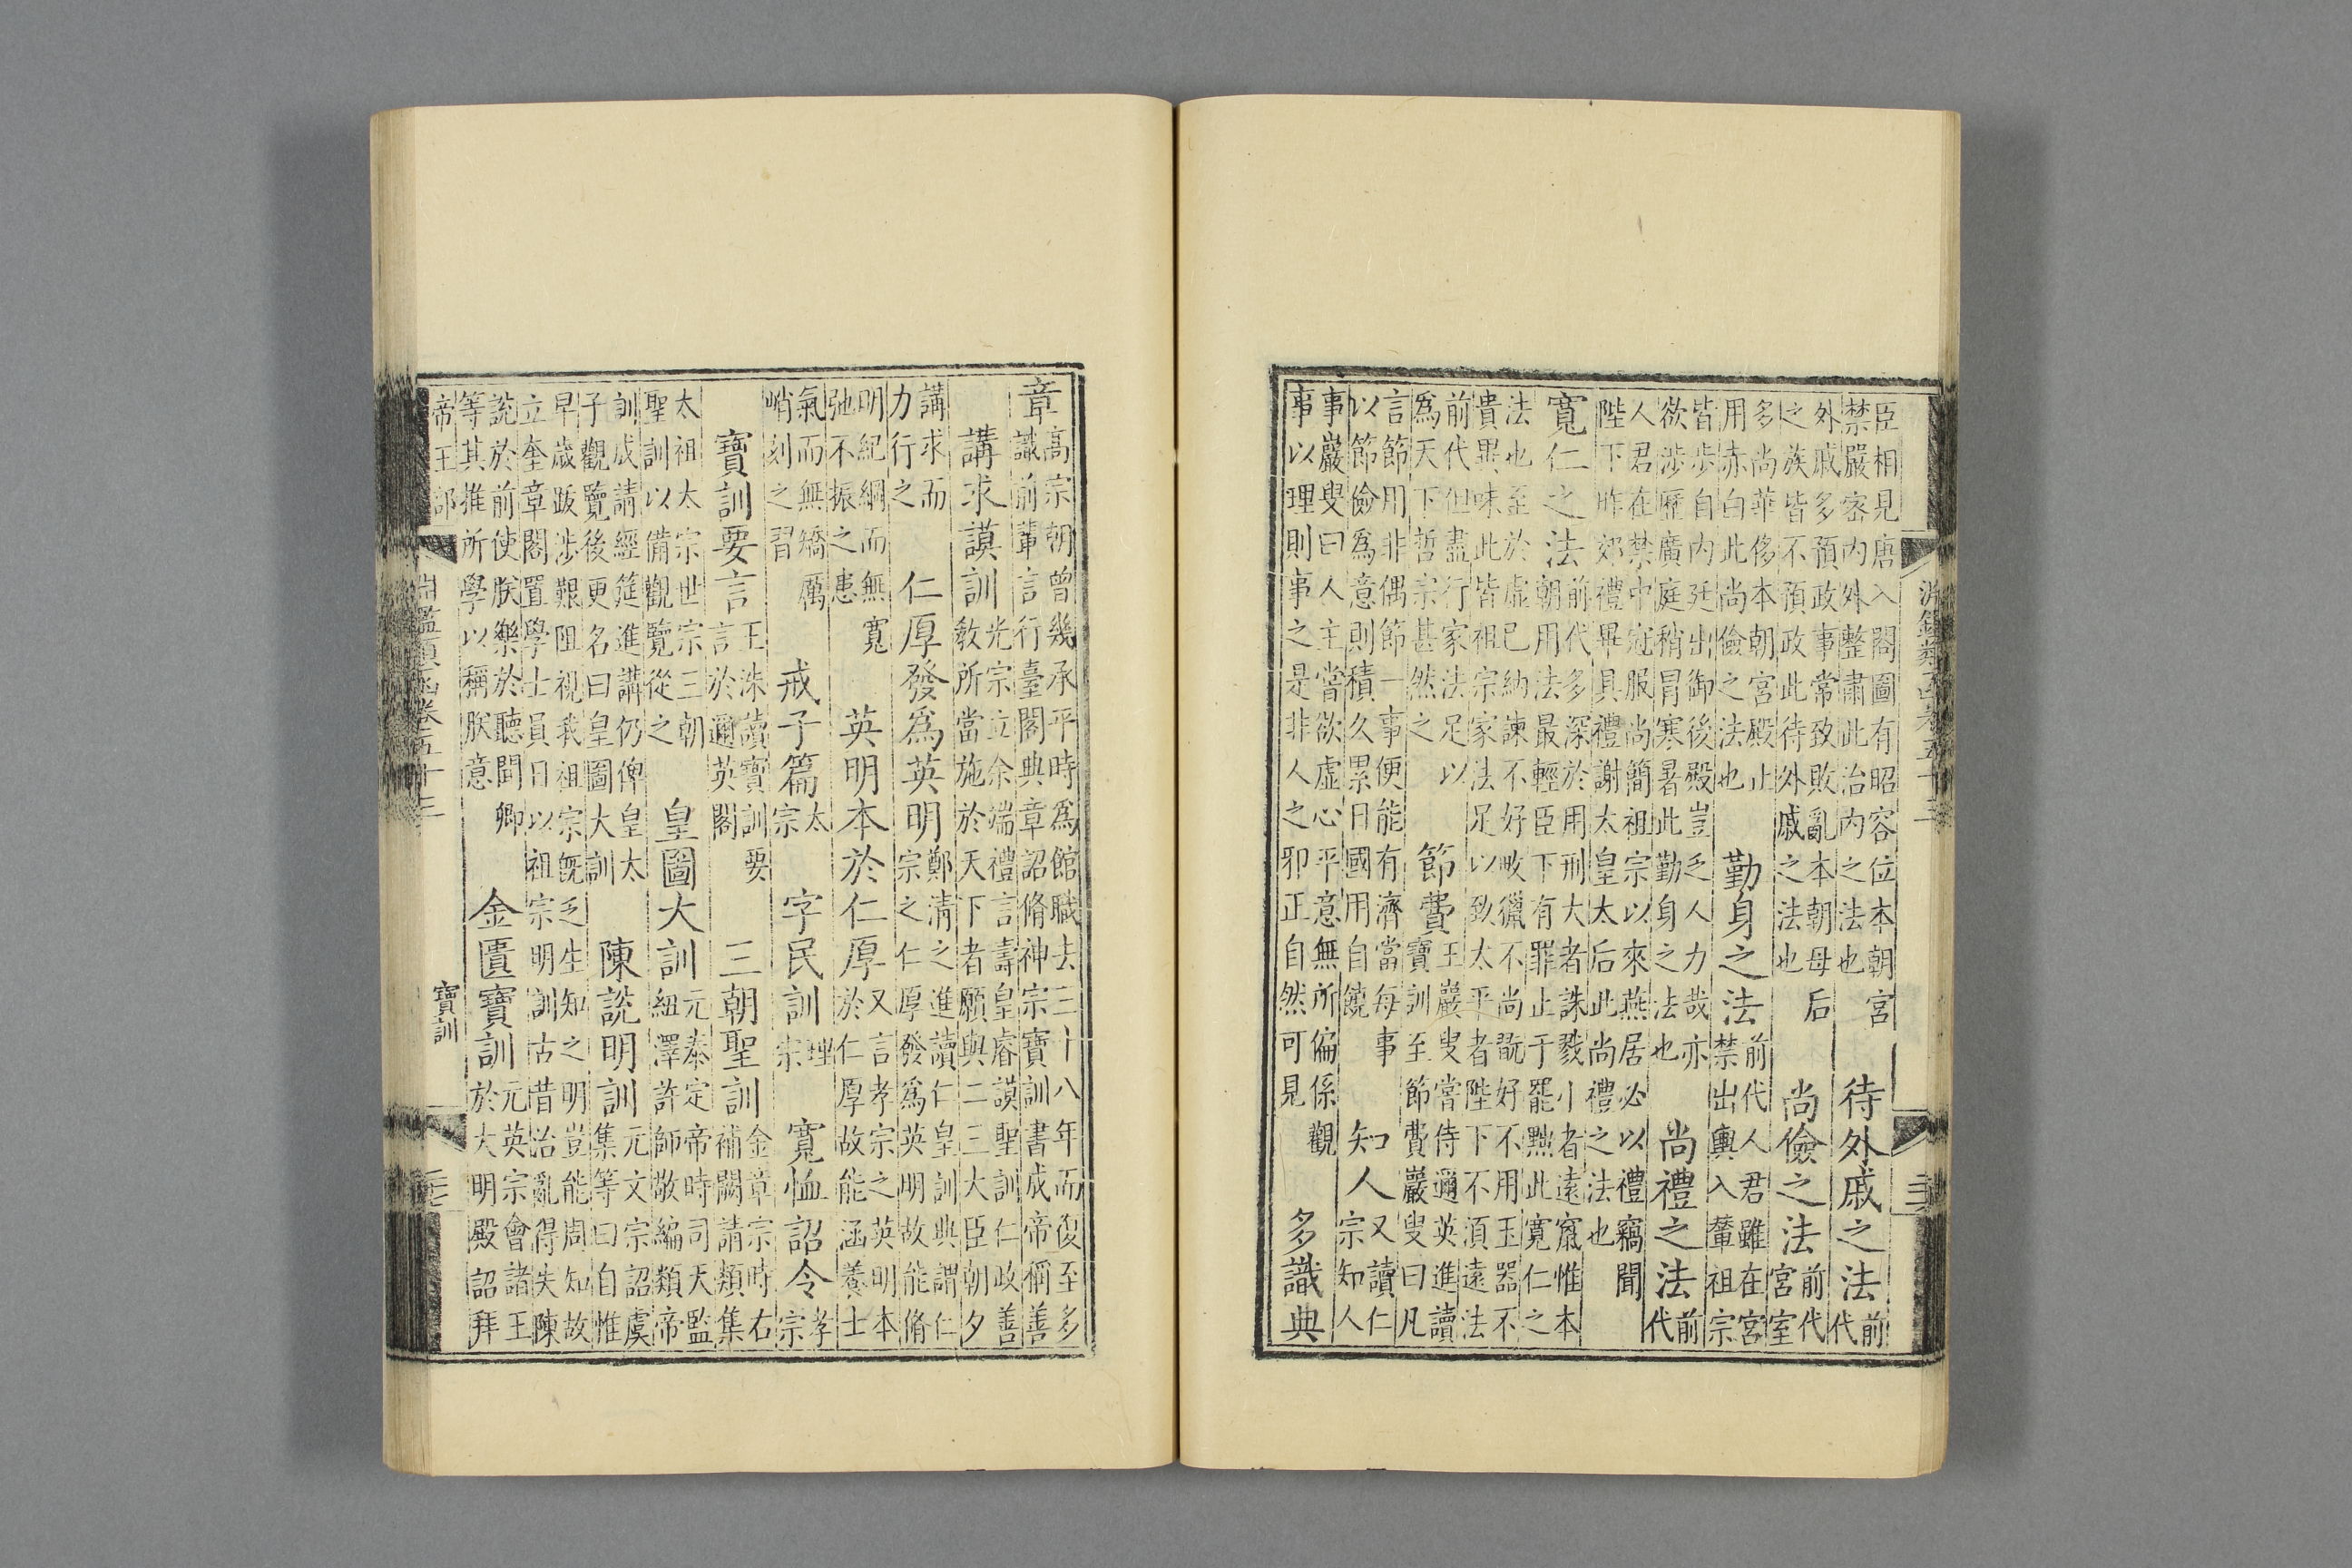 淵鑑類函卷五十三
臣相見唐入閤圖有昭容位本朝宮
禁嚴密內外整肅此治內之法也
待外戚之法
前
代
外戚多預政事常致敗亂本朝母后
之族皆不預政此待外戚之法也
尚儉之法
前代
宮室
多尚華侈本朝宮殿止
用赤白此尚儉之法也
勤身之法
前代人君雖在宮
禁出輿入輦祖宗
皆步自內廷出御後殿豈乏人力哉亦
欲涉歷廣庭稍冒寒暑此勤身之法也
尚禮之法
前
代
人君在禁中冠服尚簡祖宗以來燕居必以禮竊聞
陛下昨郊禮畢具禮謝太皇太后此尚禮之法也
寬仁之法
前代多深於用刑大者誅戮小者遠竄惟本
朝用法最輕臣下有罪止于罷黜此寬仁之
法也至於虛已納諫不好畋獵不尚翫好不用玉器不
貴異味此皆祖宗家法足以致太平者陛下不須遠法
前代但盡行家法足以
爲天下哲宗甚然之
節費
王巖叟嘗侍邇英進讀
寶訓至節費巖叟曰凡
言節用非偶節一事便能有濟當每事
以節儉爲意則積久累日國用自饒
知人
又讀仁
宗知人
事巖叟曰人主當欲虛心平意無所偏係觀
事以理則事之是非人之邪正自然可見
多識典
章
高宗朝曾幾承平時爲館職去三十八年而復至多
識前輩言行臺閣典章詔脩神宗寶訓書成帝稱善
講求謨訓
光宗立余端禮言壽皇睿謨聖訓仁政善
教所當施於天下者願與二三大臣朝夕
講求而
力行之
仁厚發爲英明
鄭清之進讀仁皇訓典謂仁
宗之仁厚發爲英明故能脩
明紀綱而無寬
弛不振之患
英明本於仁厚
又言孝宗之英明本
於仁厚故能涵養士
氣而無矯厲
峭刻之習
戒子篇
太
宗
字民訓
理
宗
寬恤詔令
孝
宗
寶訓要言
王洙讀寶訓要
言於邇英閣
三朝聖訓
金章宗時右
補闕請類集
太祖太宗世宗三朝
聖訓以備觀覽從之
皇圖大訓
元泰定帝時司天監
紐澤許師敬編類帝
訓成請經筵進講仍俾皇太
子觀覽後更名曰皇圖大訓
陳說明訓
元文宗詔虞
集等曰自惟
早歲跋涉艱阻視我祖宗旣乏生知之明豈能周知故
立奎章閣置學士員日以祖宗明訓古昔治亂得失陳
說於前使朕樂於聽聞卿
等其推所學以稱朕意
金匱寶訓
元英宗會諸王
於大明殿詔拜
帝王部
淵鑑類函卷五十三
寶訓